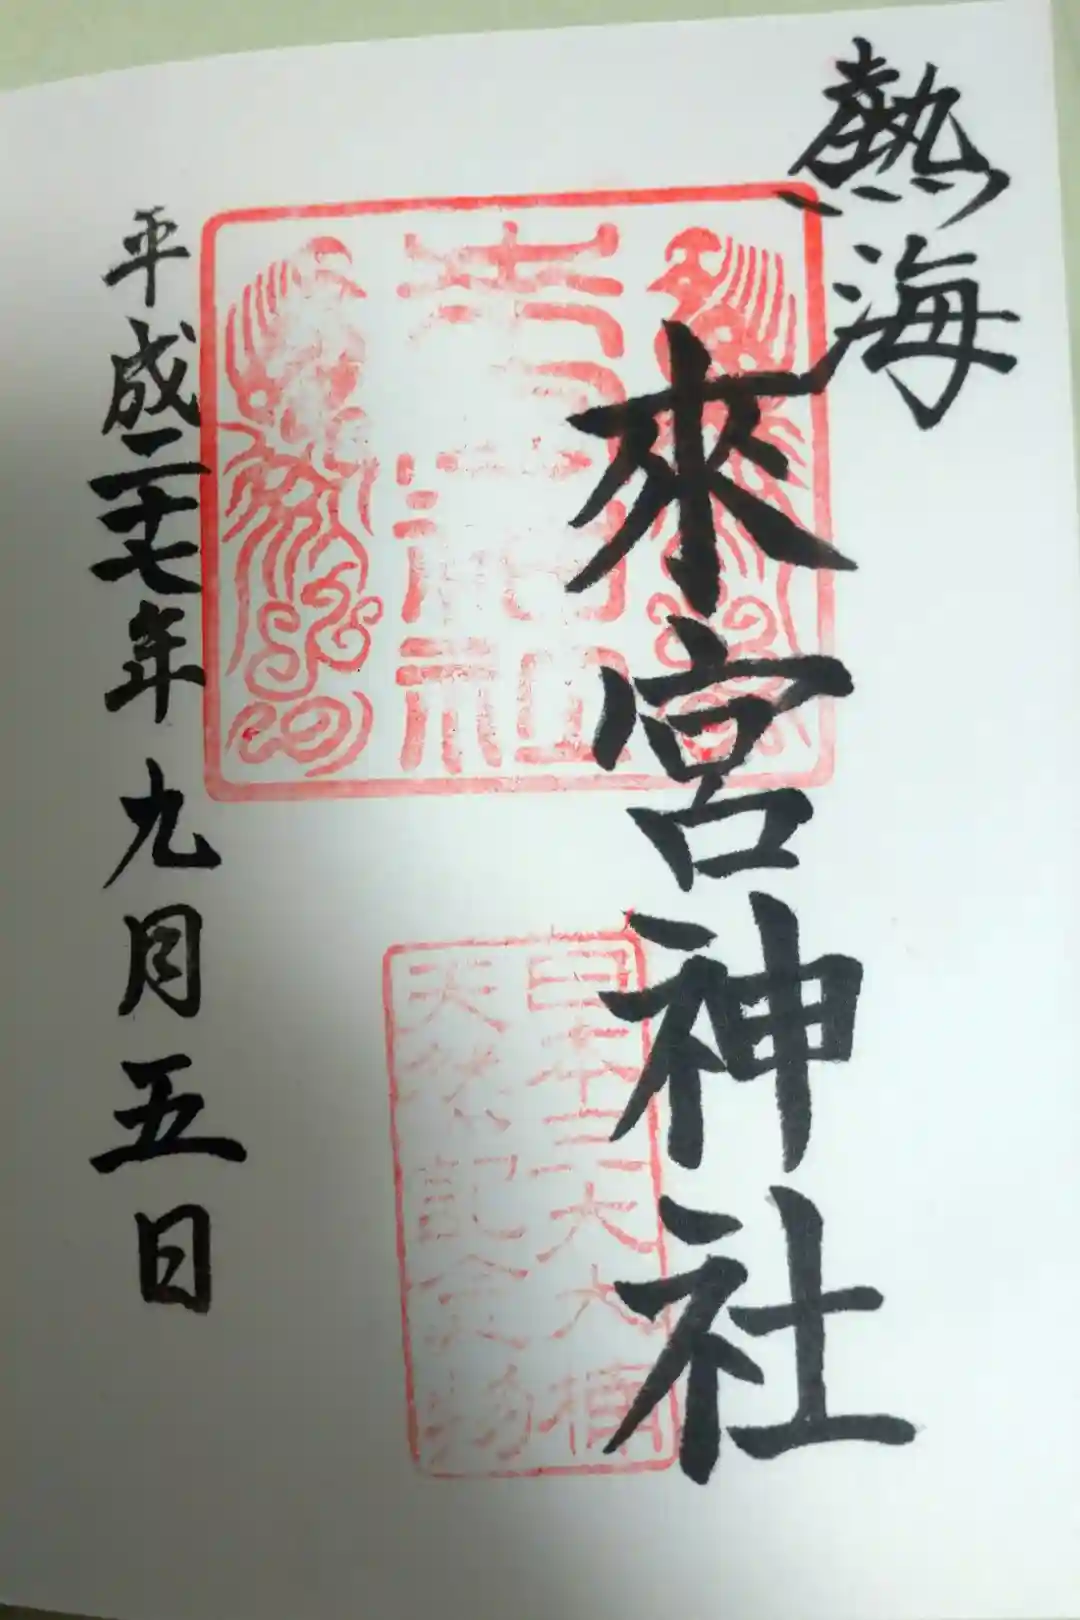 熱海
來宮神社
日本三大大楠
天然記念物
平成二十七年九月五日